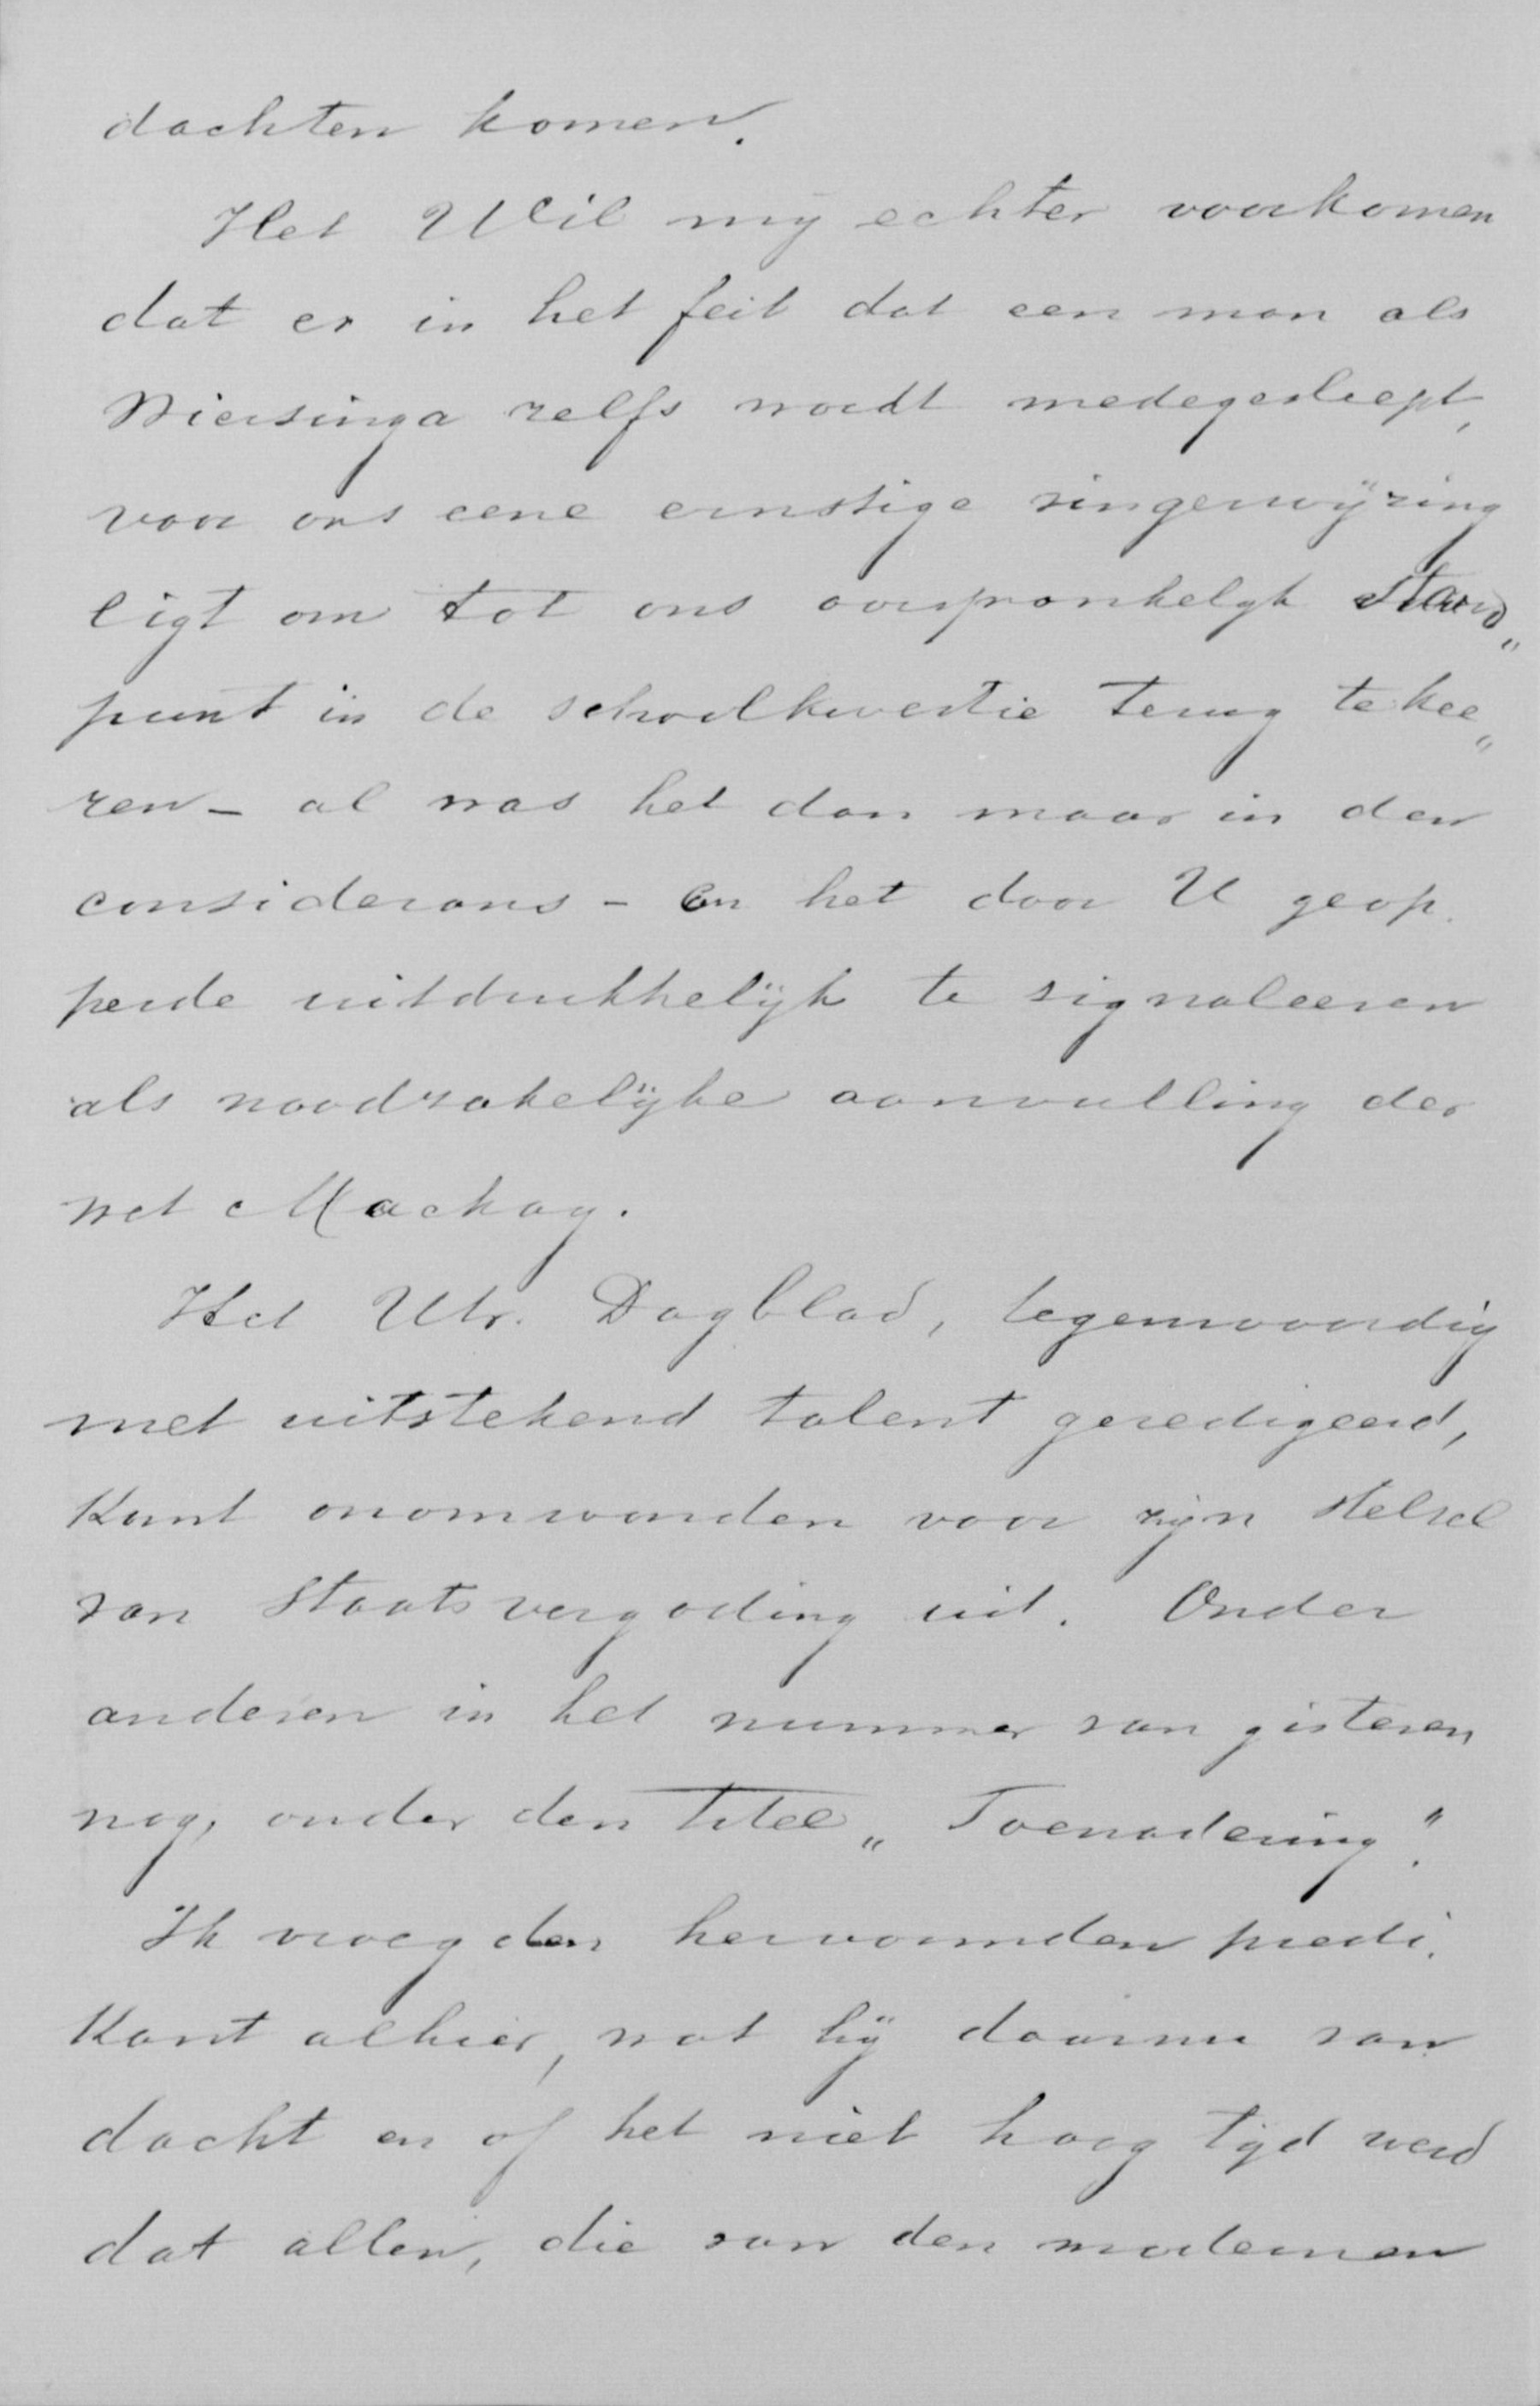 dachten komen.
Het Wil mij echter voorkomen
dat er in het feit dat een man als
Wiersinga zelfs wordt medegesleept,
voor ons eene ernstige vingerwijzing
ligt om tot ons oorspronkelijk stand„
punt in de schoolkwestie terug te kee„
ren – al was het dan maar in den
considerans – en het door U geop.
perde uitdrukkelijk te signaleeren
als noodzakelijke aanvulling der
wet Mackay.
Het Utr. Dagblad, tegenwoordig
met uitstekend talent geredigeerd,
Komt onomwonden voor zijn stelsel
van Staatsvergoding uit. Onder
anderen in het nummer van gisteren
nog, onder den titel „Toenadering".
Ik vroeg den hervormden predi.
Kant alhier, wat hij daarnu van
dacht en of het niet hoog tijd werd
dat allen, die van den modernen